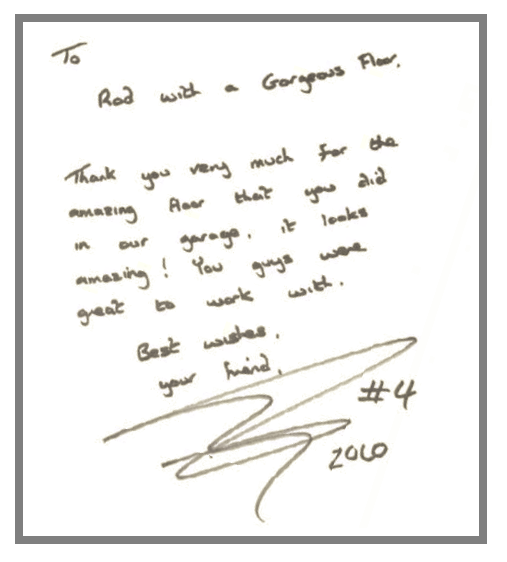 To
Rod with a Gorgeous Floor.
Thank you very much for the
amazing floor that you did
in our garage. it looks
amazing! You guys were
great to work with.
Best wishes.
your friend.
#4
2010